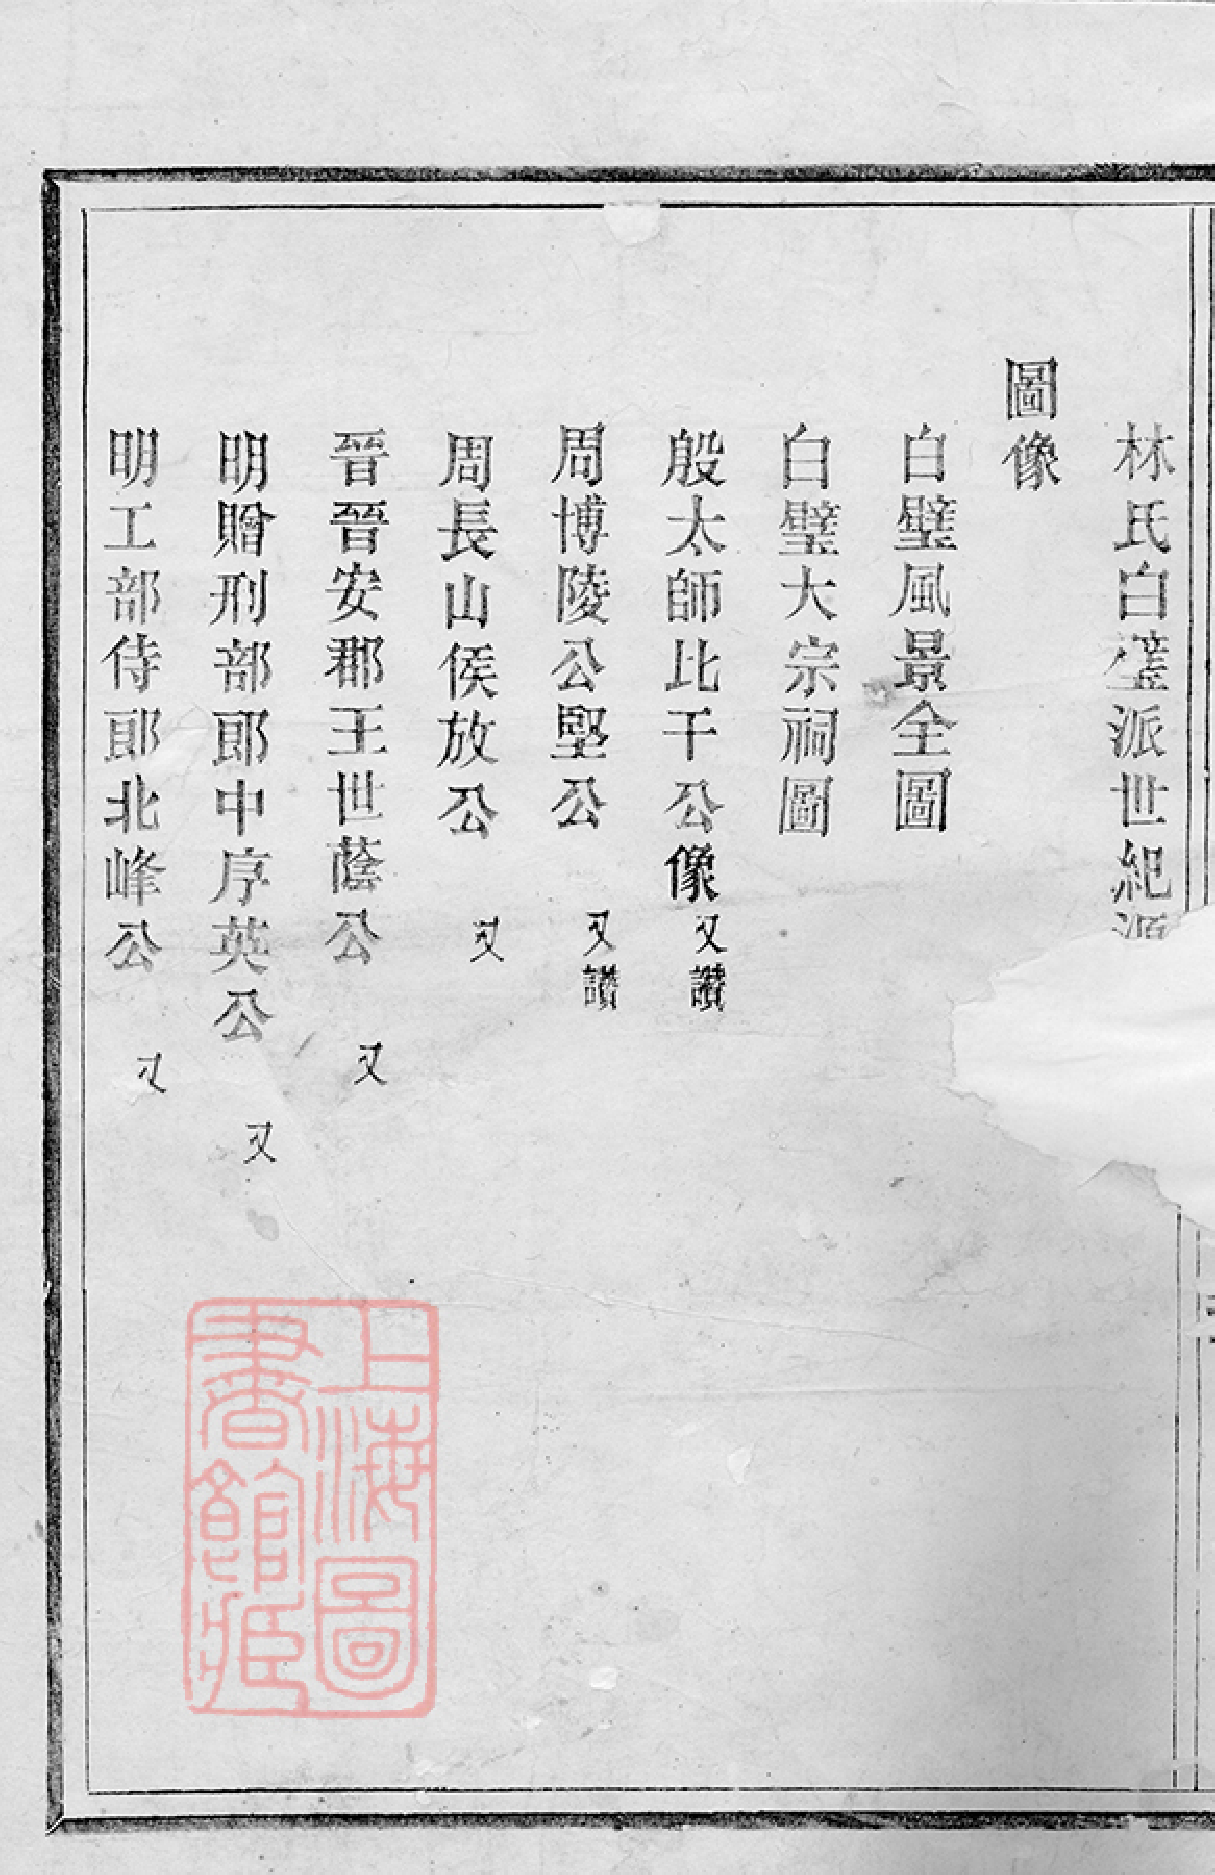 林氏白璧派世紀源
圖像
白璧風景全圖
白璧大宗祠圖
殷太師比干公像又讚
周博陵公堅公又讚
周長山侯放公又
晉晉安郡王世蔭公又
明贈刑部郎中序英公又
明工部侍郎北峰公又
上海圖
書館藏